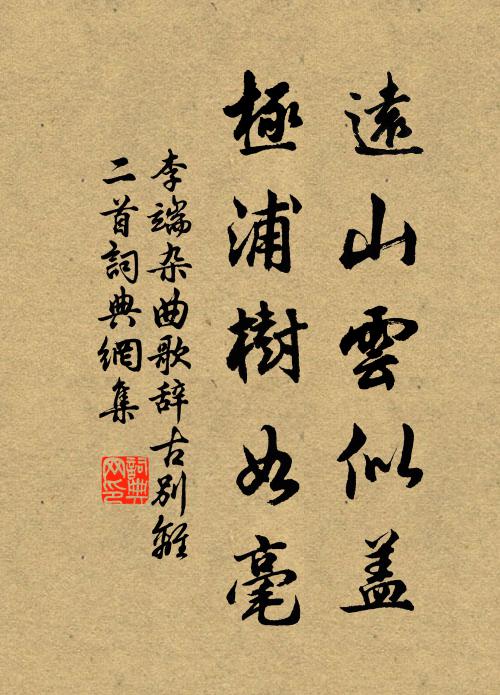 遠山雲似盖
極浦樹如毫
李端杂曲歌辞古别離
二首詞典網集
詞典网印